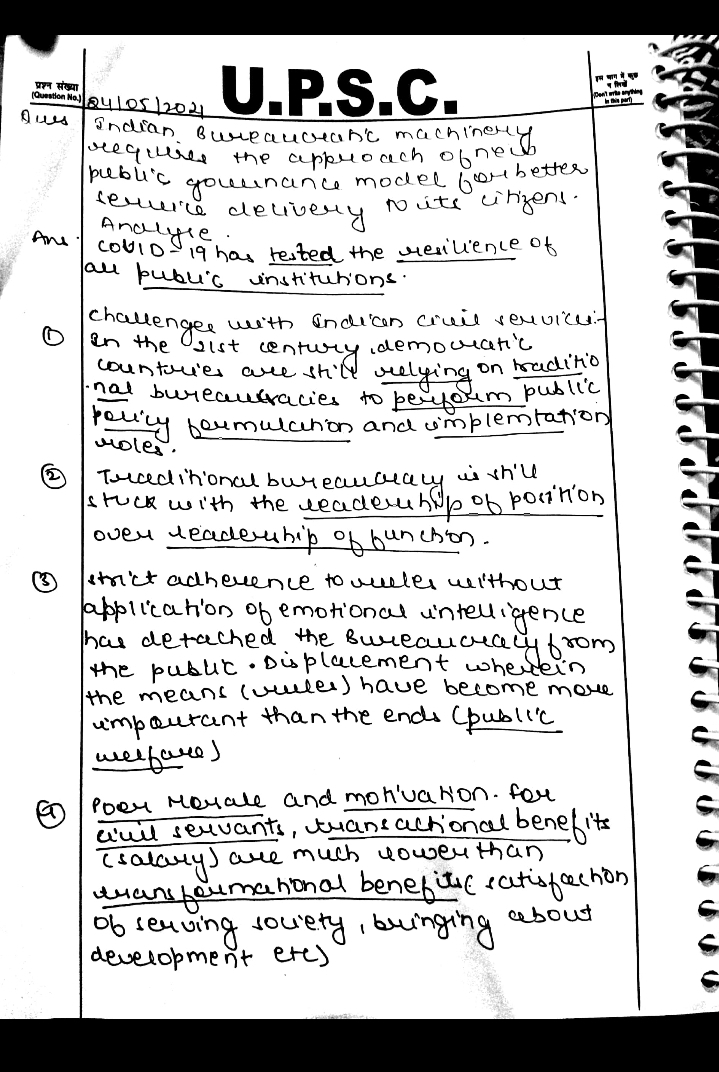 U.P.S.C.
प्रश्न संख्या
(Question No.)
इस भाग में कुछ
न लिखें
(Don't write anything
in this part)
04/05/2021
Ques Indian Bureaucratic machinery
requires the approach of new
public governance model for better
service delivery to its citizens.
Analyse.
Ans. COVID-19 has tested the resilience of
all public institutions.
Challenges with Indian civil services:-
① In the 21st century, democratic
countries are still relying on traditio
nal bureaucracies to perform public
policy formulation and implemtation
roles.
② Traditional bureaucracy is still
stuck with the leadership of position
over leadership of function.
③ strict adherence to rules without
application of emotional intelligence
has detached the Bureaucracy from
the public. Displacement wherein
the means (rules) have become more
important than the ends (public
welfare)
④ Poor Morale and motivation. for
civil servants, transactional benefits
(salary) are much lower than
transformational benefits (satisfaction
of serving society, bringing about
development etc)